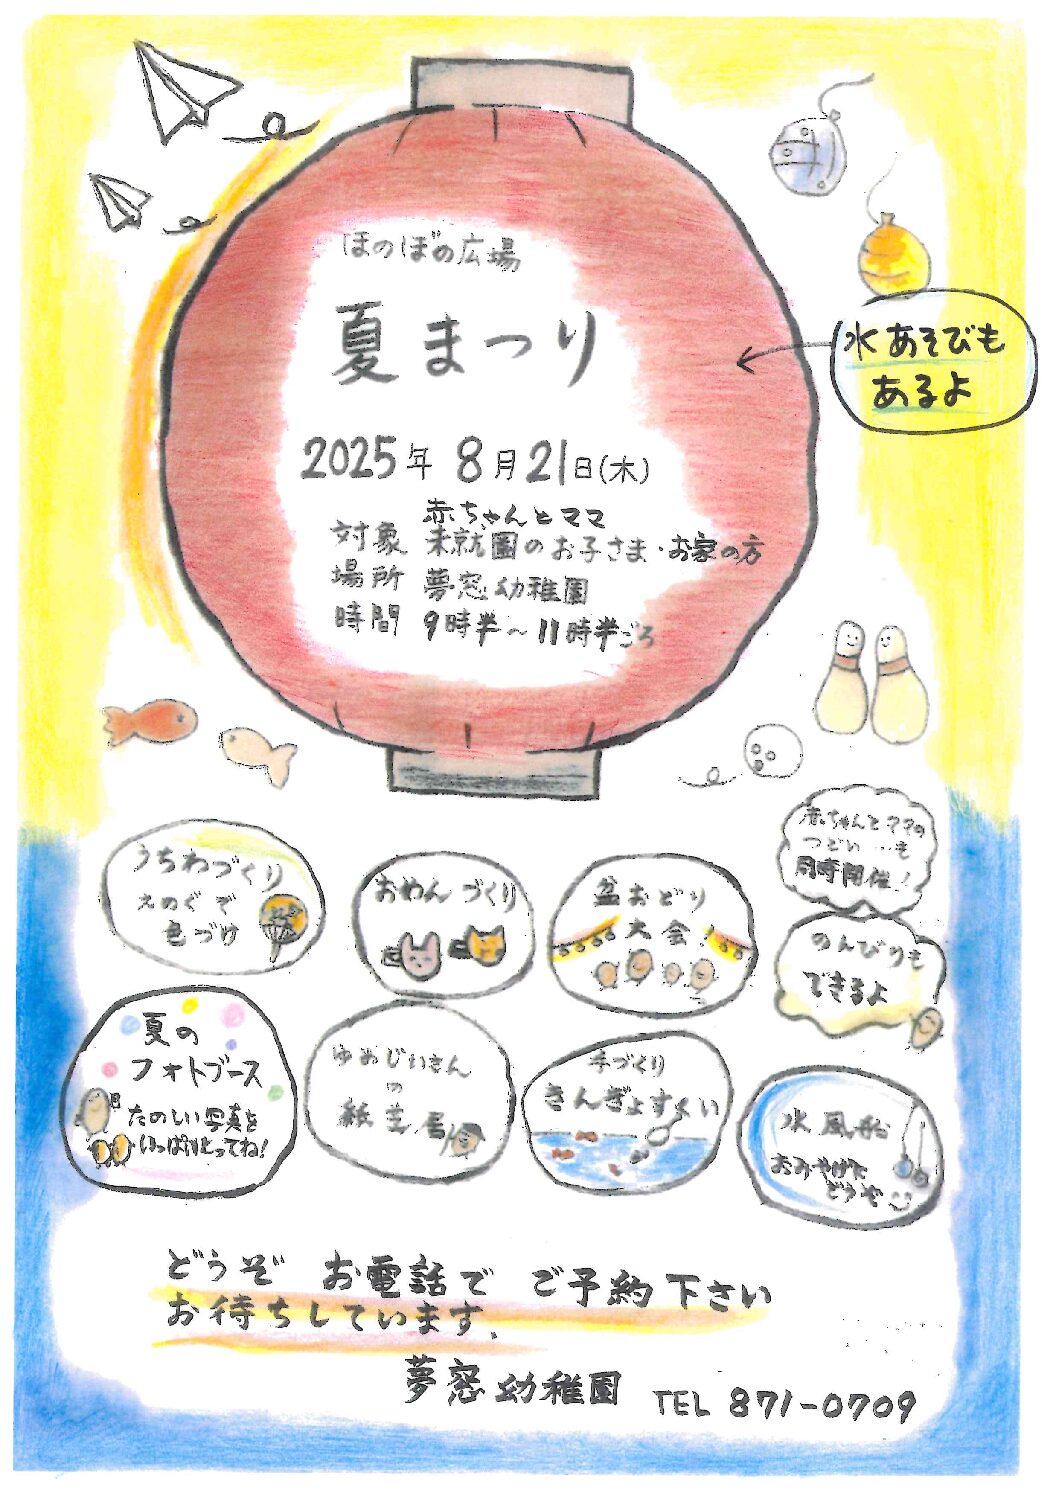 ほのぼの広場
夏まつり
水あそびも
あるよ
2025年 8月21日(木)
赤ちゃんとママ
対象 未就園のお子さま・お家の方
場所 夢窓幼稚園
時間 9時半〜11時半ごろ
赤ちゃんとママの
つどい…も
同時開催！
うちわづくり
えのぐで
色づけ
おめんづくり
盆おどり
大会！
のんびりも
できるよ
夏の
フォトブース
たのしい写真を
いっぱいとってね！
ゆめじいさん
の
紙芝居
手づくり
きんぎょすくい
水風船
おみやげに
どうぞ
どうぞ お電話で ご予約下さい
お待ちしています.
夢窓幼稚園 TEL 871-0709